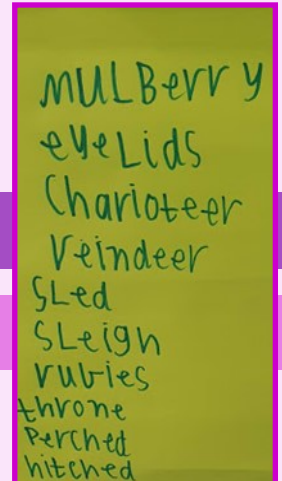 MULBerry
eyeLids
Charioteer
Veindeer
SLed
SLeigh
rubies
throne
Perched
hitched